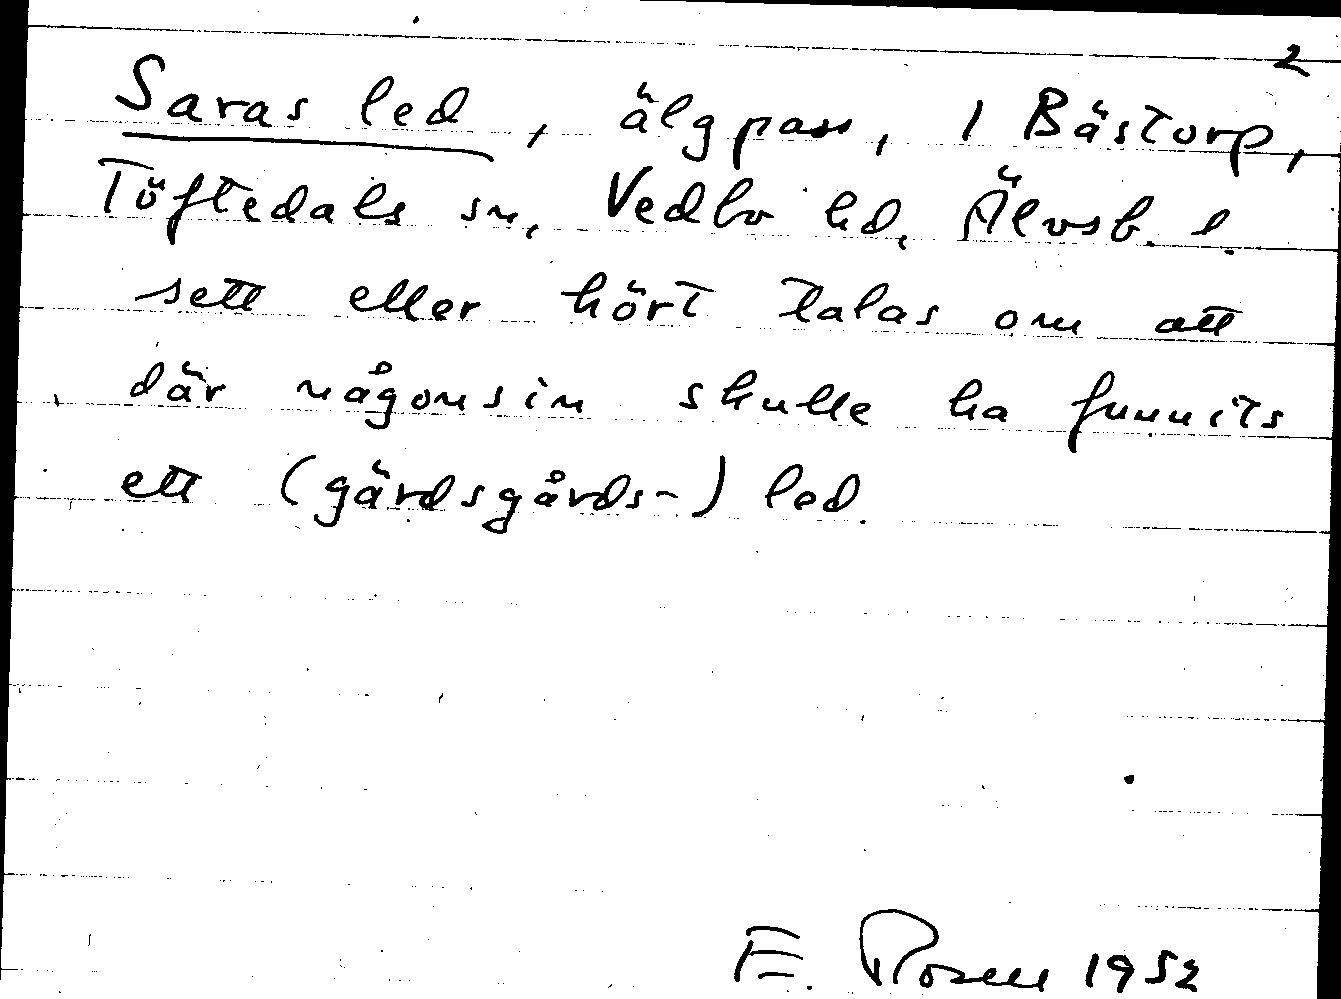 2
Saras led, älgpass, 1 Bästorp,
Töftedals sn, Vedbo hd, Älvsb. l.
sett eller hört talas om att
där någonsin skulle ha funnits
ett (gärdsgårds-) led.
E. Rosell 1952